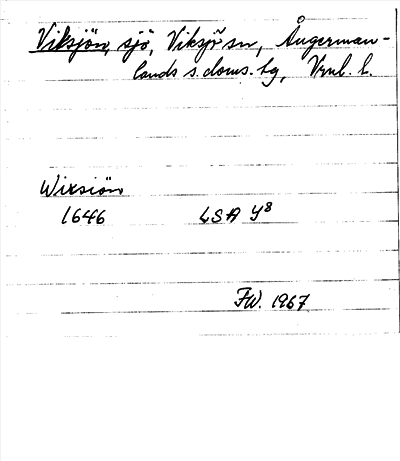 Viksjön, sjö, Viksjö sn, Ångerman-
lands s. doms. tg, Vrnl. l.
Wixsiön
1646 LSA Y8
FW. 1967